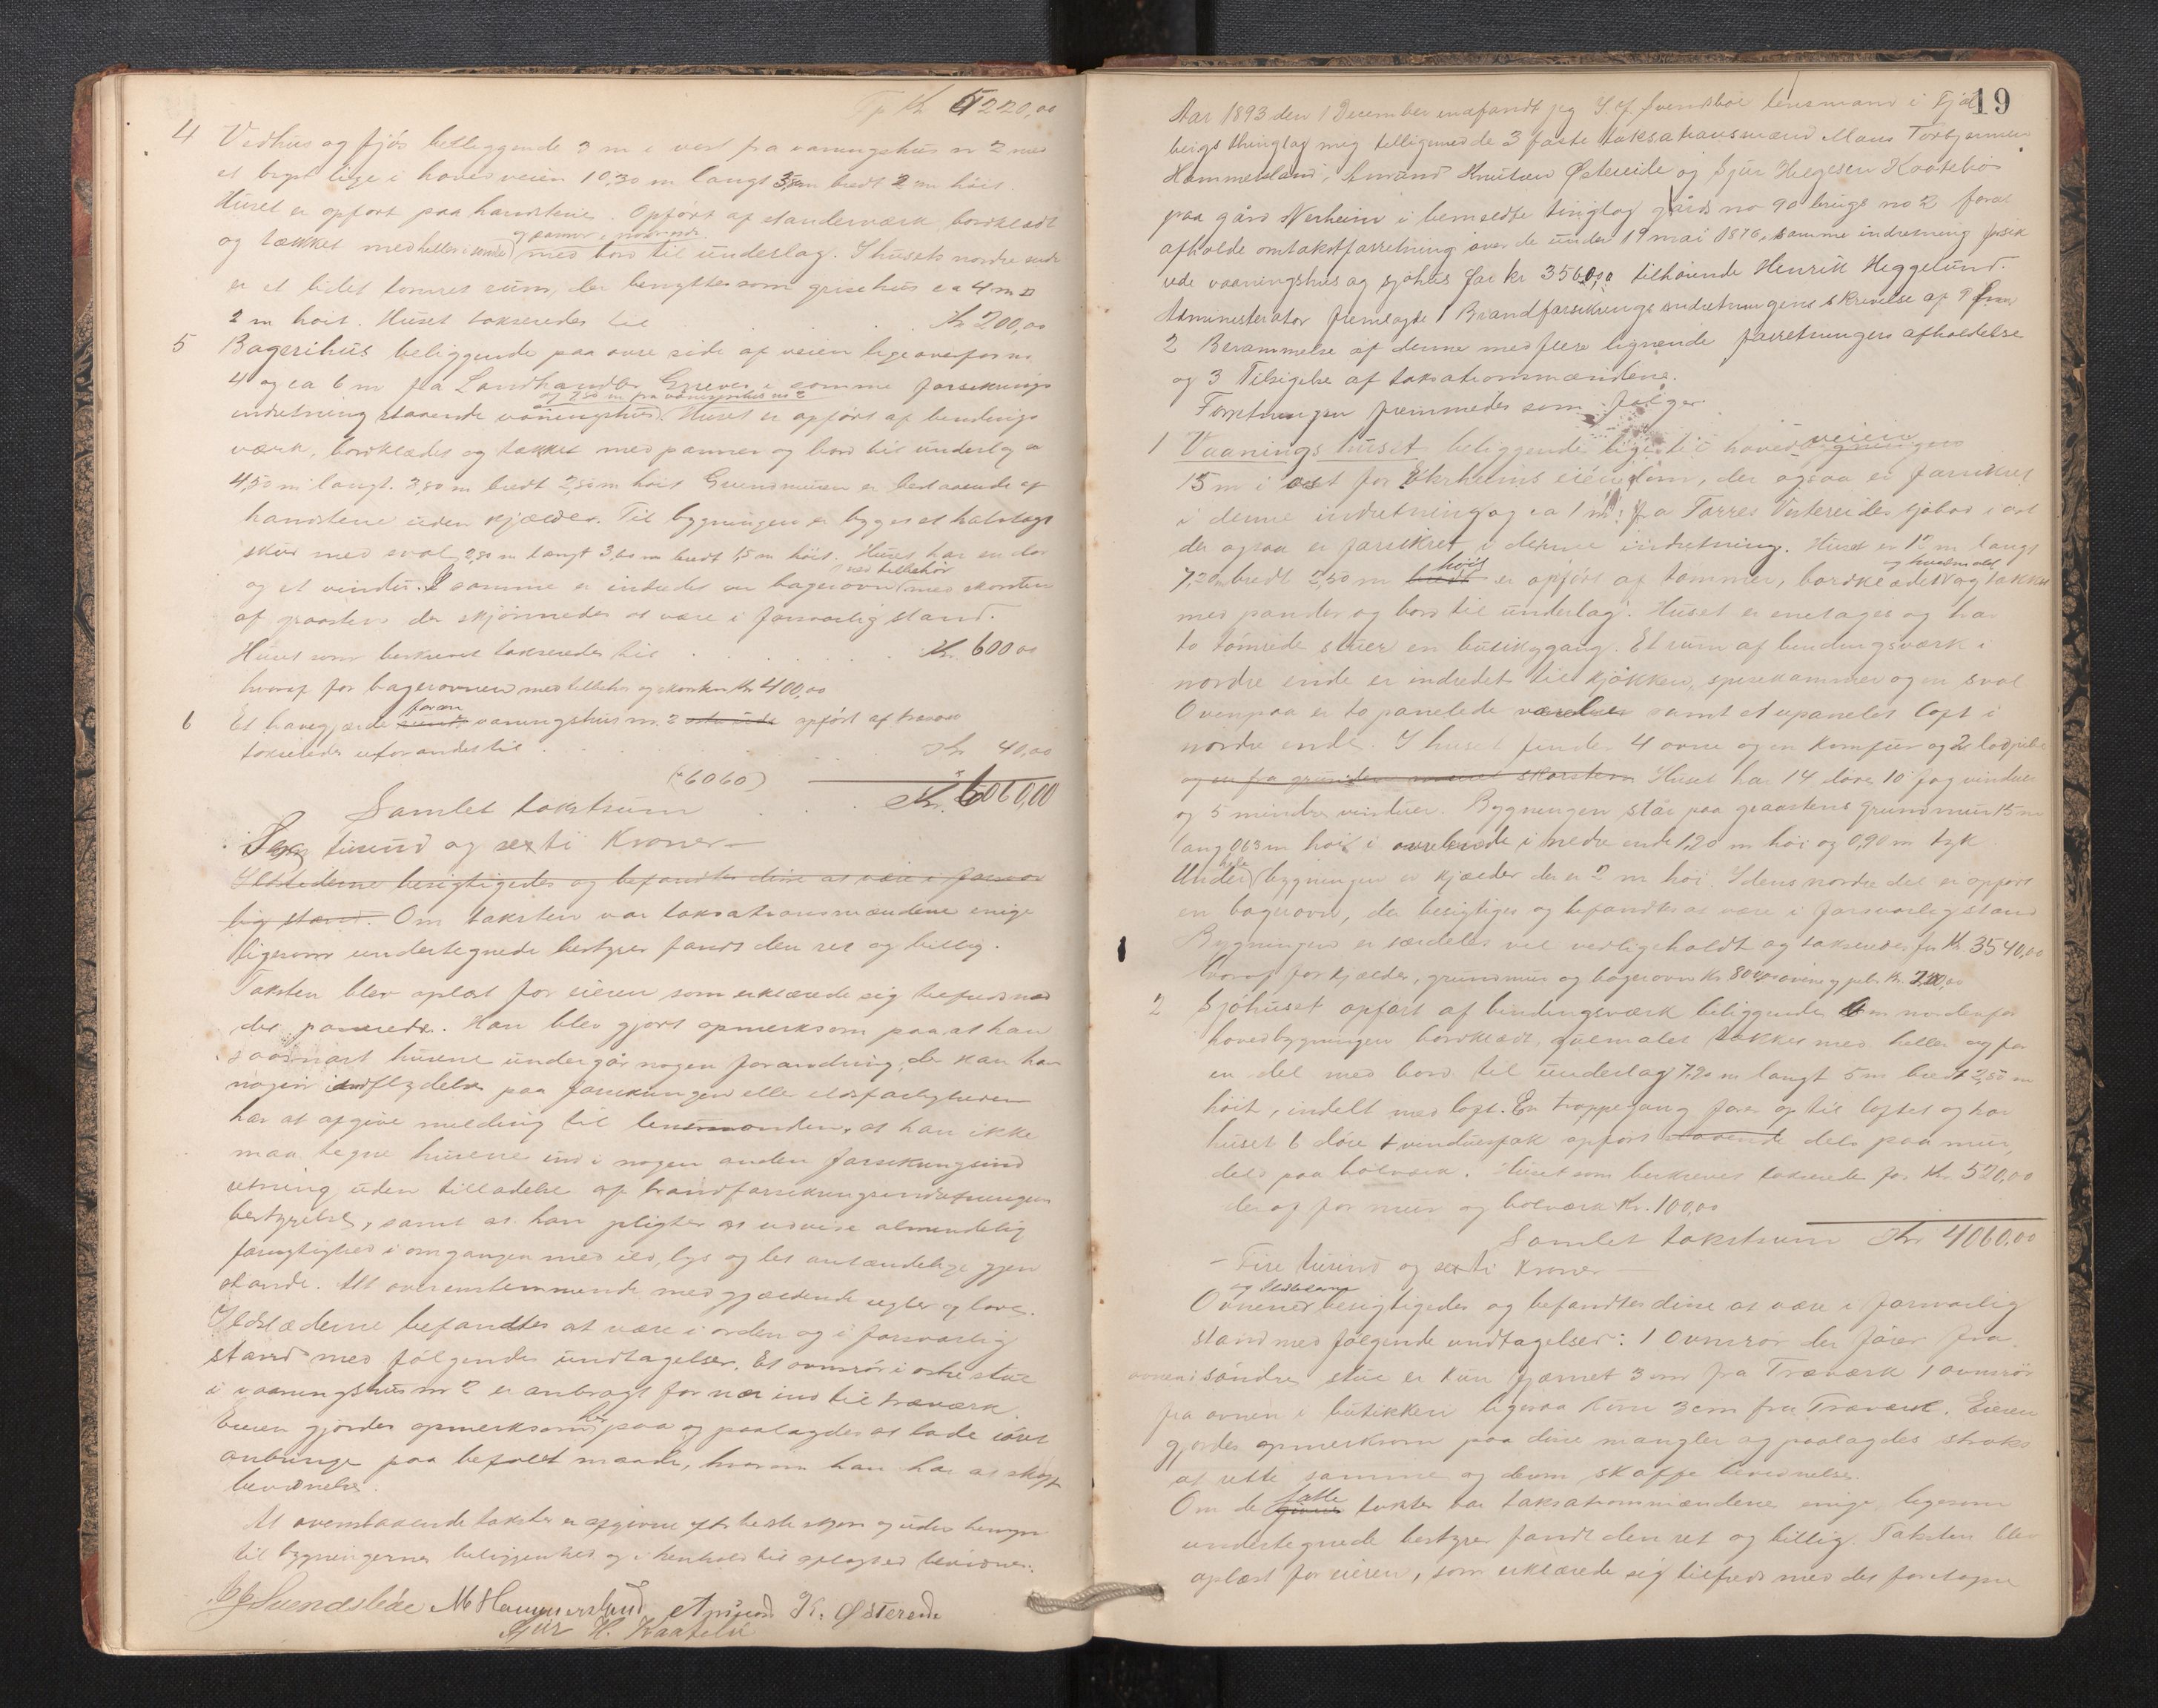 Tp Kr 5220,00
4 Vedhus og fjøs beliggende 3 m i vest fra vaaningshus nr 2 med
et bygt lige i hovedveien 10,30 m langt 3,80 m bredt 2 m høit.
Huset er opført paa handstene. Opført af standerværk, bordklædt
og tækket med heller i søndre og panner i nordende med bord til underlag. I husets nordre ende
er et lidet tømret rum, der benyttes som grisehus ca 4 m □
2 m høit. Huset takseredes til Kr 200,00
5 Bagerihus beliggende paa øvre side af veien lige overfor nr.
4 og ca 6 m fra Landhandler Greves i samme forsikrings
indretning staaende vaaningshus og 7,50 m fra vaaningshus no 2. Huset er opført af bindings
værk, bordklædet og tækket med panner og bord til underlag
4,50 m langt. 3,80 m bredt 2,50 m høit Grundmuren er bestaaende af
handstene uden kjælder. Til bygningen er bygget et halvtags
skur med sval 2,80 m langt 3,60 m bredt 1,5 m høit. Huset har en dør
og et vindu. I samme er indredet en bagerovn med tilbehør med skorsten
af graasten der skjønnedes at være i forsvarlig stand.
Huset som beskrevet takseredes til Kr. 600,00
hvoraf for bagerovnen med tilbehør og skorsten Kr 400,00
6 Et havegjærde foran vaaningshus nr. 2 opført af
takseredes uforandret til Kr 40,00
("6060)
Samlet takstsum Kr. 6060,00
Sex tusund og sexti Kroner —
Ildstederne besigtigedes og befandtes disse at være i forsvar
lig stand. Om taksten var taksationsmændene enige
ligesom undertegnede bestyrer fandt den ret og billig.
Taksten blev oplæst for eieren som erklærede sig tilfreds med
det passerede. Han blev gjort opmerksom paa at han
saasnart husene undergår nogen forandring, der kan ha
nogen indflydelse paa forsikringen eller ildsfarligheden
har at afgive melding til lensmanden, at han ikke
maa tegne husene ind i nogen anden forsikringsind
retning uden tilladelse af brandforsikringsindretningens
bestyrelse, samt at han pligter at udvise almindelig
forsigtighed i omgangen med ild, lys og let antændelige gjen
stande. Alt overensstemmende med gjældende regler og love.
Ildstæderne befandtes at være i orden og i forsvarlig
stand med følgende undtagelser. Et ovnsrør i østre stue
i vaaningshus nr 2 er anbragt for nær ind til træværk.
Eieren gjordes opmerksom her paa og paalagdes at lade røret
anbringe paa befalet maade, hvorom han har at skaffe
bevidnelse.
At ovenstaaende takster er afgivne efter bedste skjøn og uden hensyn
til bygningernes beliggenhed og i henhold til aflagt ed bevidnes.
J J Svendsbøe M T Hammersland Amund K. Østereide
Sjur H. Kaatebø
19
Aar 1893 den 1 December indfandt jeg J. J. Svendsbøe lensmand i Fjel
bergs thinglag mig tilligemed de 3 faste taksationsmænd Mons Torbjørnsen
Hammersland, Amund Knutsen Østereide og Sjur Helgesen Kaatebø
paa gård Nerheim i bemeldte tinglag gårds no 90 brugs no 2 for at
afholde omtakstforretning over de under 19 mai 1876 i samme indretning forsik
rede vaaningshus og sjøhus for kr 3560,00 tilhørende Henrik Heggelund.
Administrator fremlagde 1 Brandforsikrings indretningens skrivelse af
2 Berammelse af denne med flere lignende forretningers afholdelse
og 3 Tilsigelse af taksationsmændene.
Forretningen fremmedes som følger
1 Vaanings huset beliggende lige til hovedveien
15 m i øst for Økrheims eiendom, der ogsaa er forsikret
i denne indretning og ca 1 m fra Torres Østereides sjøbod i øst
der ogsaa er forsikret i denne indretning. Huset er 15 m langt
7,20 m bredt 2,50 m høit er opført af tømmer, bordklædet og hvidmalet og tækket
med pander og bord til underlag. Huset er enetages og har
to tømrede stuer en butik og gang. Et rum af bindingsværk i
nordre ende er indredet til kjøkken, spisekammer og en sval
Ovenpaa er to panelede værelser samt et upanelet loft i
nordre ende. I huset findes 4 ovne og en Komfur og 2
og en fra grunden muret skorsten. Huset har 14 døre 10 fag vinduer
og 5 mindre vinduer. Bygningen står paa graastens grundmur 15 m
lang 0,63 m høi i øvre ende i nedre ende 1,20 m høi og 0,90 m tyk.
Under hele bygningen er kjælder der er 2 m høi. I dens nordre del er opført
en bagerovn, der besigtiges og befandtes at være i forsvarlig stand
Bygningen er særdeles vel vedligeholdt og takseredes for Kr 3540,00
hvoraf for kjælder, grundmur og bagerovn Kr 800,00
2 Sjøhuset opført af bindingsværk beliggende 6 m nordenfor
hovedbygningen bordklædt, hvidmalet tækket med heller og for
en del med bord til underlag 7,20 m langt 5 m bredt 2,50 m
høit, indelt med loft. En trappegang fører op til loftet og har
huset 6 døre 1 vinduesfak opført staaende dels paa mur,
dels paa bolværk. Huset som beskrevet takseredes for Kr 520,00
deraf for mur og bolværk Kr. 100,00
Samlet takstsum Kr 4060,00
— Fire tusind og sexti Kroner —
Ovnene og ildstederne besigtigedes og befandtes disse at være i forsvarlig
stand med følgende undtagelser: 1 Ovnsrør der fører fra
ovnen i søndre stue er kun fjærnet 3 cm fra Træværk 1 ovnsrør
fra ovnen i butikken ligesaa kun 3 cm fra Træværk. Eieren
gjordes opmerksom paa disse mangler og paalagdes straks
at rette samme og derom skaffe bevidnelse.
Om de satte takster var taksationsmændene enige, ligesom
undertegnede bestyrer fandt den ret og billig. Taksten blev
oplæst for eieren, som erklærede sig tilfreds med det foretagne